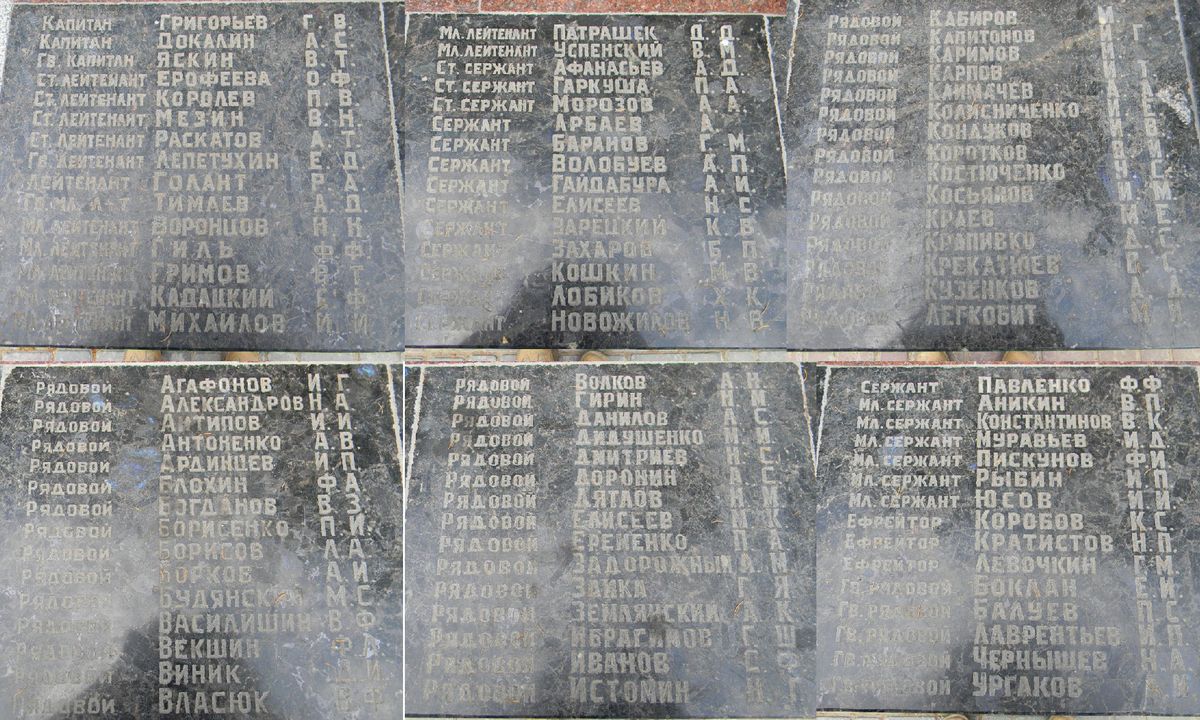 Капитан Григорьев Г. В.
Капитан Докалин А. С.
Гв. капитан Яскин В. Т.
Ст. лейтенант Ерофеева О. Ф.
Ст. лейтенант Королев П. В.
Ст. лейтенант Мезин В. Н.
Ст. лейтенант Раскатов А. Т.
Гв. лейтенант Лепетухин Е. Д.
Лейтенант Голант Р. А.
Гв. мл. л-т Тимаев А. Д.
Мл. лейтенант Воронцов Н. К.
Мл. лейтенант Гиль Ф. Ф.
Мл. лейтенант Гримов В. Т.
Мл. лейтенант Кадацкий С. Ф.
Мл. лейтенант Михайлов И. И.
Мл. лейтенант Патрашек Д. Д.
Мл. лейтенант Успенский В. И.
Ст. сержант Афанасьев А. Д.
Ст. сержант Гаркуша П. А.
Ст. сержант Морозов А. А.
Сержант Арбаев А.
Сержант Баранов Г. М.
Сержант Волобуев А. П.
Сержант Гайдабура А. И.
Сержант Елисеев Н. С.
Сержант Зарецкий К. В.
Сержант Захаров Б. П.
Сержант Кошкин М. В.
Лобиков Х. К.
Сержант Новожилов Н. В.
Рядовой Кабиров И.
Рядовой Капитонов Г.
Рядовой Каримов
Рядовой Карпов Т.
Рядовой Климачёв
Рядовой Колисниченко
Рядовой Кондуков
Рядовой Коротков
Рядовой Костюченко
Рядовой Косьянов
Рядовой Краев
Рядовой Крапивко
Рядовой Крекатюев
Рядовой Кузенков
Рядовой Легкобит
Рядовой Агафонов И. Г.
Рядовой Александров Н. А.
Рядовой Антипов И. И.
Рядовой Антоненко А. В.
Рядовой Ардинцев И. П.
Рядовой Блохин Ф. А.
Рядовой Богданов В. З.
Рядовой Борисенко П. И.
Рядовой Борисов Л. А.
Рядовой Борков А. И.
Рядовой Будянский М. С.
Рядовой Василишин В. Ф.
Рядовой Векшин
Рядовой Виник
Рядовой Власюк
Рядовой Волков А. Н.
Рядовой Гирин
Рядовой Данилов
Рядовой Дидушенко
Рядовой Дмитриев
Рядовой Доронин
Рядовой Дятлов
Рядовой Елисеев
Рядовой Еременко
Рядовой Задорожный
Рядовой Заика Г. Я.
Рядовой Землянский А. К.
Рядовой Ибрасимов С. Ш.
Рядовой Иванов С. Ф.
Рядовой Истомин Н. Г.
Сержант Павленко Ф. Ф.
Мл. сержант Аникин В. П.
Мл. сержант Константинов В. К.
Мл. сержант Муравьев И. Д.
Мл. сержант Пискунов Ф. И.
Мл. сержант Рыбин И. П.
Мл. сержант Юсов И. И.
Ефрейтор Коробов К. С.
Ефрейтор Кратистов Н. П.
Ефрейтор Левочкин Г. М.
Гв. рядовой Боклан Е. И.
Гв. рядовой Балуев П. С.
Гв. рядовой Лаврентьев И. П.
Гв. рядовой Чернышев Н. А.
Гв. рядовой Ургаков А. И.